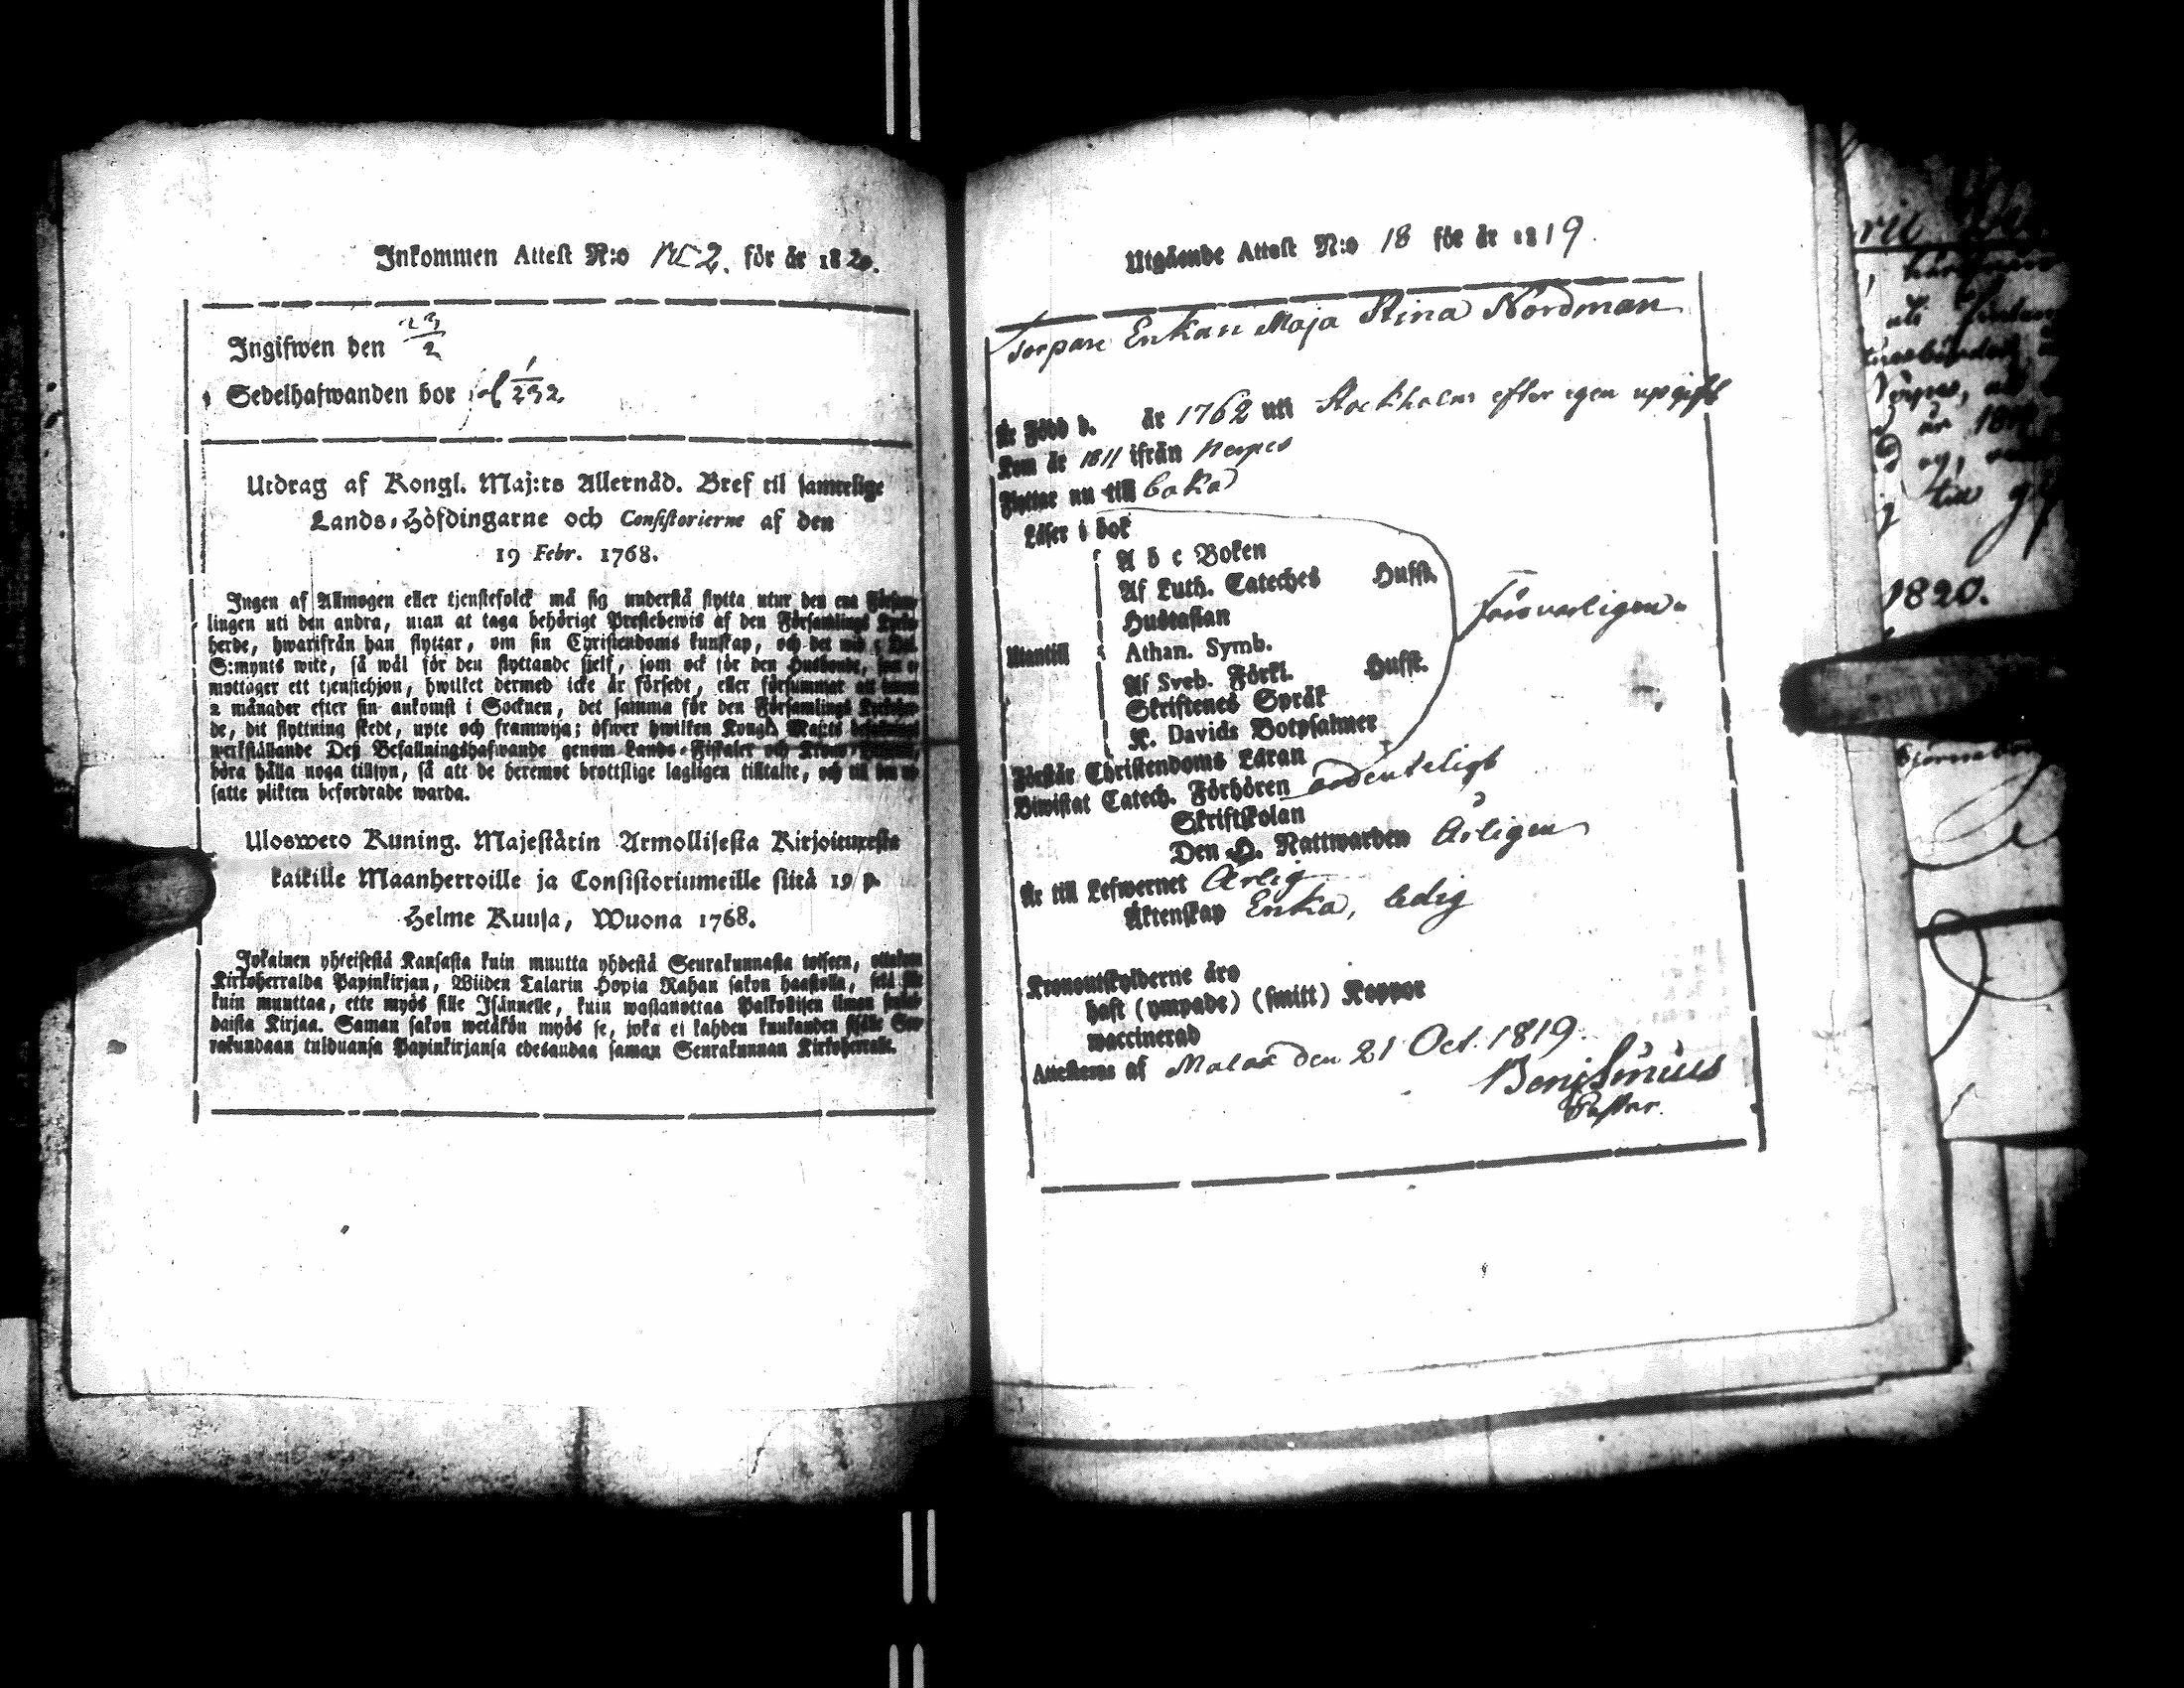 Inkommen Attest N:o 2. för år 1820.
Ingifwen den 23/2
Sedelhafwanden bor 1/232
Utdrag af Kongl. Maj:ts Allernåd. Bref til samtelige
Lands-Höfdingarne och Consistorierne af den
19 Febr. 1768.
Ingen af Allmogen eller tjenstefolck må sig understå flytta utur den ena Försam-
lingen uti den andra, utan at taga behörige Prestebewis af den Församlings Kyrko-
herde, hwarifrån han flyttar, om sin Christendoms kunskap, och det wid 5 Dal.
S:mynts wite, så wäl för den flyttande sjelf, som ock för den Husbonde, som
mottager ett tjenstehjon, hwilket dermed icke är försedt, eller försummar att inom
2 månader efter sin ankomst i Socknen, det samma för den Församlings Kyrkoher-
de, dit flyttning skedt, upte och framwisa; öfwer hwilken Kongl. Maj:ts befallnings
werkställande Deß Befallningshafwande genom Lands-Fiskaler och Krono-Betjente,
böra hålla noga tillsyn, så att de heremot brottslige lagligen tilltalte, och til den ut-
satte plikten befordrade warda.
Uloswero Kuning. Majestätin Armollisesta Kirjoituxesta
kaikille Maanherroille ja Consistoriumeille siitä 19 p.
Helme Kuusa, Wuona 1768.
Jokainen yhteisestä Kansasta kuin muutta yhdestä Seurakunnasta toiseen, ottakoon
Kirkoherralda Papinkirjan, Wiiden Talarin Hopia Rahan sakon haastolla, sekä sille
kuin muuttaa, ette myös sille Isännelle, kuin wastanottaa Palkollisen ilman senkal-
daista Kirjaa. Saman sakon wetäkön myös se, joka ei kahden kuukauden sisälle Seu-
rakundaan tulduansa Papinkirjansa edesandaa saman Seurakunnan Kirkoherralle.
Utgående Attest N:o 18 för år 1819.
Torpare Enkan Maja Stina Nordman
Är Född d. år 1762 uti Stockholm efter egen upgift
Kom år 1811 ifrån Nerpes
Flyttar nu till baka
Läser i bok
A b c Boken
Af Luth. Cateches Husst.
Hustaflan
Utantill Athan. Symb. försvarligen.
Af Sveb. Förkl. Husst.
Skriftenes Språk
K. Davids Botpsalmer
Förstår Christendoms Läran
Biwistat Catech. Förhören ordenteligt
Skriftskolan
Den H. Nattwarden Årligen
Är till Lefwernet Ärlig
Äktenskap Enka, ledig
Kronoutskylderne äro
haft (ympade) (smitt) Koppor
vaccinerad
Attesteras af Malax den 21 Oct. 1819.
Pastor.
1820.